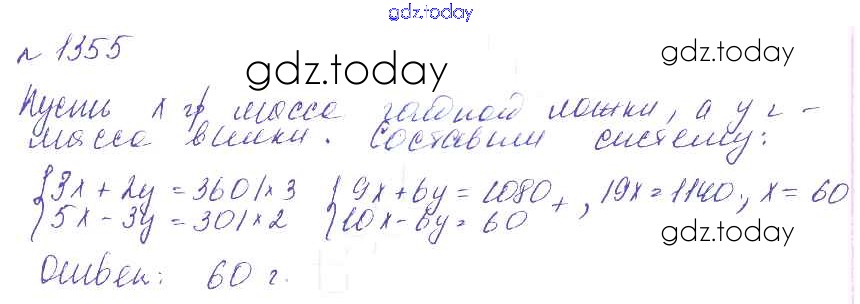 gdz.today
№ 1355
gdz.today
gdz.today
Пусть x гр масса чайной ложки, а y г -
масса вилки. Составим систему:
{3x + 2y = 360 | × 3 {9x + 6y = 1080 + , 19x = 1140, x = 60
{5x - 3y = 30 | × 2 {10x - 6y = 60
gdz.today
Ответ: 60 г.